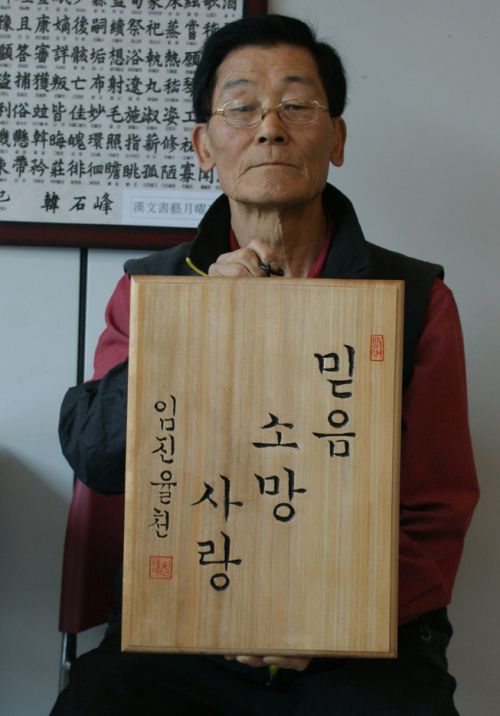 豫且康嫡後嗣續祭祀蒸嘗
顧答審詳骸垢想浴執熱願
捕獲叛亡布射遼丸嵇
利俗竝皆佳妙毛施淑姿工
璣懸斡晦魄環照指薪修祜
束帶矜莊徘徊瞻眺孤陋寡聞
韓石峰
漢文書藝月曜
믿음
소망
사랑
임진 율천